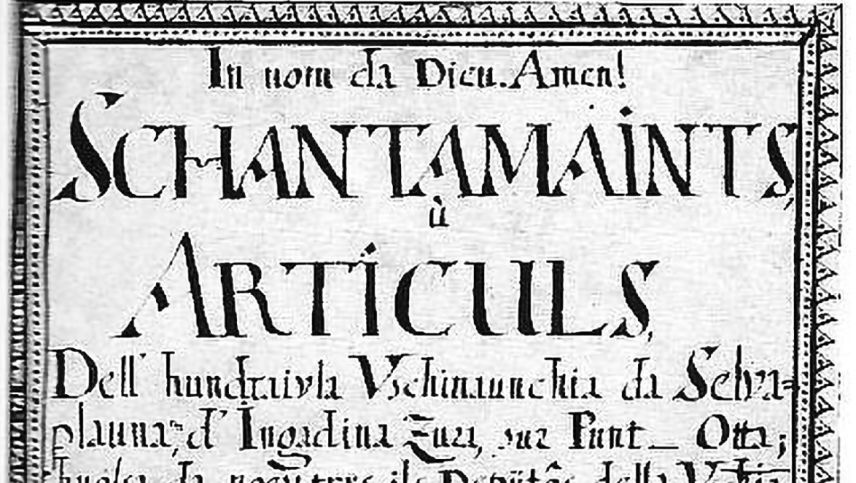 In nom da Dieu. Amen!
SCHANTAMAINTS,
ù
ARTÍCULS,
Dell' hundraivla Vschinaunchia da Selva=
plauna, d' Ingadina Zura, sur Punt_Otta;
da